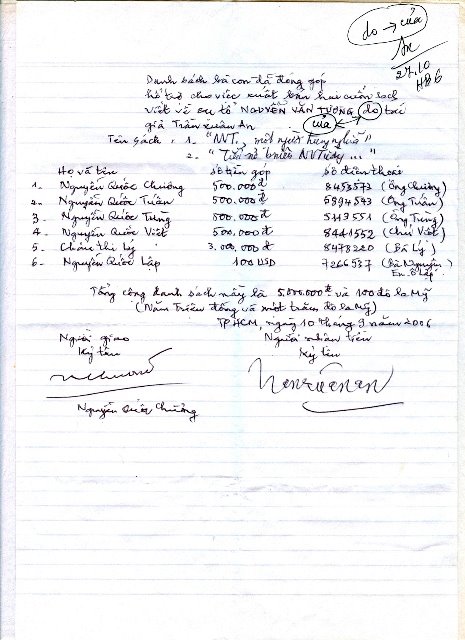 do → của
An
27.10
HB6
Danh sách bà con đã đóng góp
hỗ trợ cho việc xuất bản hai cuốn sách
viết về sư tổ NGUYỄN VĂN TƯỜNG do tác
của
giả Trần Xuân An
Tên sách: 1- "NVT., một người trung nghĩa"
2- "Tiểu sử biên niên NVT
Họ và tên số tiền góp số điện thoại
1- Nguyễn Quốc Chưởng 500.000đ 8453573 (Ông Chưởng)
2- Nguyễn Quốc Tuân 500.000đ 5894543 (Ông Tuân)
3- Nguyễn Quốc Tung 500.000đ 5113551 (Ông Tung)
4- Nguyễn Quốc Việt 500.000đ 8441552 (Chú Việt)
5- Châu Thị Lý 3.000.000đ 8478220 (Bà Lý)
6- Nguyễn Quốc Lập 100 USD 7266537 (Bà Nguyện)
Em Ô Lập
Tổng cộng danh sách nầy là 5.000.000đ và 100 đô la Mỹ
(Năm triệu đồng và một trăm đô la Mỹ)
TP HCM, ngày 10 tháng 9 năm 2006
Người giao Người nhận tiền
Ký tên Ký tên
Nguyễn Quốc Chưởng